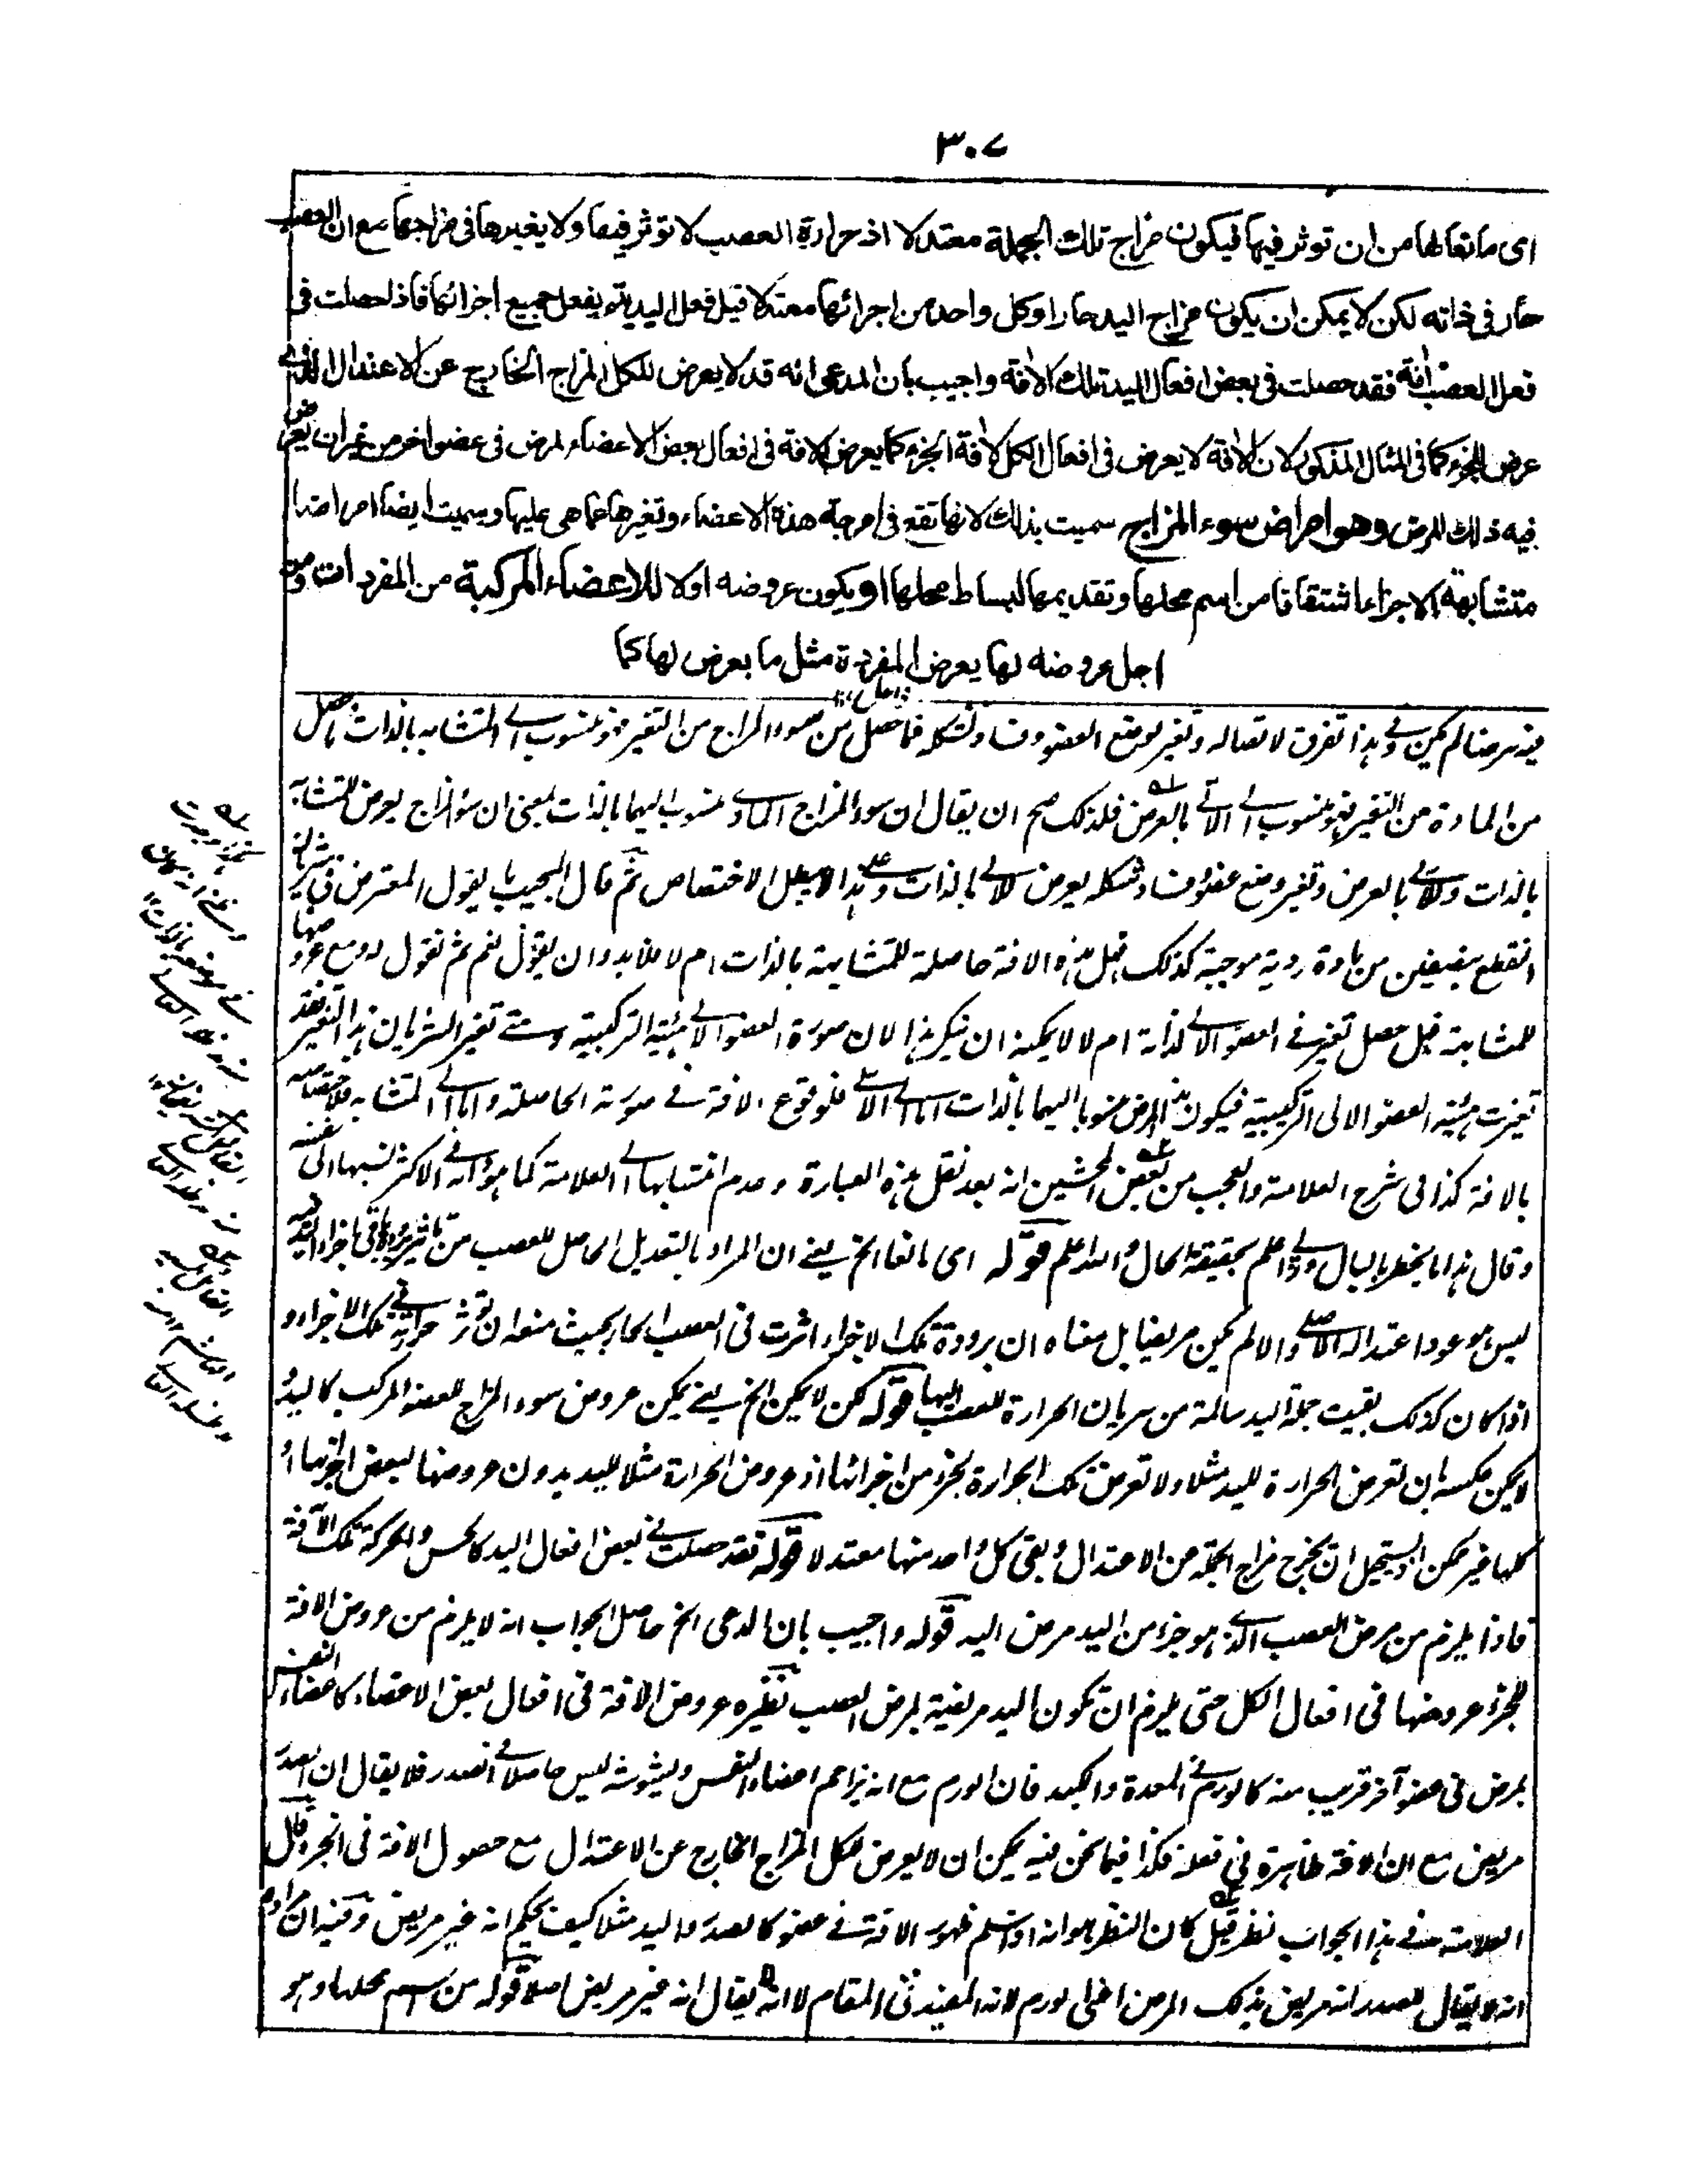 ٣٠٧
اى مانعا لها من ان توثر فيها فيكون مزاج تلك الجملة معتدلا اذ حرارة العصب لا توثر فيها ولا يغيرها فى مزاجها مع ان العصب
حار فى ذاته لكن لا يمكن ان يكون مزاج اليد حارا وكل واحد من اجزائها معتدلا قيل فعل اليد يتم بفعل جميع اجزائها فاذا حصلت فى
فعل العصب افة فقد حصلت فى بعض افعال اليد تلك الافة واجيب بان المدعى انه قد لا يعرض للكل المزاج الخارج عن الاعتدال الذى
عرض للجزء كما فى المثال المذكور لان الافة لا يعرض فى افعال الكل لافة الجزء كما يعرض الافة فى افعال بعض الاعضاء لمرض فى عضو اخر من غير ان يعرض
فيه ذلك المرض وهو امراض سوء المزاج سميت بذلك لانها تقع فى امزجة هذه الاعضاء وتغيرها عما هى عليها وسميت ايضا امراضا
متشابهة الاجزاء اشتقاقا من اسم محلها وتقديمها لبساط محلها او يكون عروضه اولا للاعضاء المركبة من المفردات ومن
اجل عروضه لها يعرض المفردة مثل ما يعرض لها كما
فيه مرضا لم يكن وفى هذا تفرق لاتصاله وتغير لوضع العضو وفساد لشكله فما حصل من سوء المزاج من التغير فهو منسوب الى المتشابه بالذات وما حصل
من المادة من التغير فهو منسوب الى الآلى بالعرض فلذلك صح ان يقال ان سوء المزاج المادى منسوب اليهما بالذات بمعنى ان سوء المزاج يعرض للمتشابه
بالذات وللآلى بالعرض وتغير وضع عضو وفساد شكله يعرض للآلى بالذات وعلى هذا لا يبطل الاختصاص ثم قال المجيب ما يقول المعترض فى شريان
انقطع بنصفين من مادة ردية موجبة كذلك فهل هذه الافة حاصلة للمتشابهة بالذات ام لا فلا بد وان يقول نعم ثم نقول له ومع عروضها
للمتشابهة فهل حصل تغير فى العضو الآلى لذاته ام لا لا يمكنه ان ينكر هذا لان صورة العضو الآلى هيئته التركيبية ومتى تغير الشريان هذا التغير فقد
تغيرت هيئته العضو الالى التركيبية فيكون هذا المرض منسوبا اليهما بالذات اما الى الآلى فلوقوع الافة فى صورته الحاصلة واما الى المتشابه فلاختصاصه
بالافة كذا فى شرح العلامة والعجب من بعض المحشين انه بعد نقل هذه العبارة وعدم انتسابها الى العلامة كما هو دأبه فى الاكثر نسبها الى نفسه
وقال هذا ما يخطر بالبال والله اعلم بحقيقة الحال والله اعلم قوله اى مانعا الخ يعنى ان المراد بالتعديل الحاصل للعصب من تاثير برودة باقى اجزاء اليد فيه
ليس هو عود اعتداله الاصلى والا لم يكن مريضا بل معناه ان برودة تلك الاجزاء اثرت فى العصب الحار بحيث منعه ان توثر حرارته فى تلك الاجزاء و
اذا كان كذلك بقيت جملة اليد سالمة من سريان الحرارة للعصب اليها قوله لكن لا يمكن الخ يعنى يمكن عروض سوء المزاج للعضو المركب كاليد و
لا يمكن عكسه بان تعرض الحرارة لليد مثلا ولا تعرض تلك الحرارة لجزء من اجزائها اذ عروض الحرارة مثلا لليد بدون عروضها لبعض اجزائها او
كلها غير ممكن اذ يستحيل ان يخرج مزاج الجملة من الاعتدال وبقى كل واحد منها معتدلا قوله فقد حصلت فى بعض افعال اليد كالحس والحركة تلك الآفة
فاذا يلزم من مرض العصب الذى هو جزء من اليد مرض اليد قوله واجيب بان المدعى الخ حاصل الجواب انه لا يلزم من عروض الافة
للجزء عروضها فى افعال الكل حتى يلزم ان تكون اليد مريضة بمرض العصب نظيره عروض الافة فى افعال بعض الاعضاء كاعضاء التنفس
لمرض فى عضو آخر قريب منه كالورم فى المعدة والكبد فان الورم مع انه يزاحم اعضاء التنفس ويشوشه ليس حاصلا فى الصدر فلا يقال ان الصدر
مريض مع ان الافة ظاهرة فى فعله فكذا فيما نحن فيه يمكن ان لا يعرض للكل المزاج الخارج عن الاعتدال مع حصول الافة فى الجزء قال
العلامة فى هذا الجواب نظر قيل كان النظر هو انه اذا سلم ظهور الافة فى عضو كالصدر واليد مثلا كيف يحكم انه غير مريض وفيه ان مراده
انه لا يقال للصدر انه مريض بذلك المرض اعنى الورم لانه المفيد فى المقام لا انه يقال انه غير مريض اصلا قوله من اسم محلها وهو